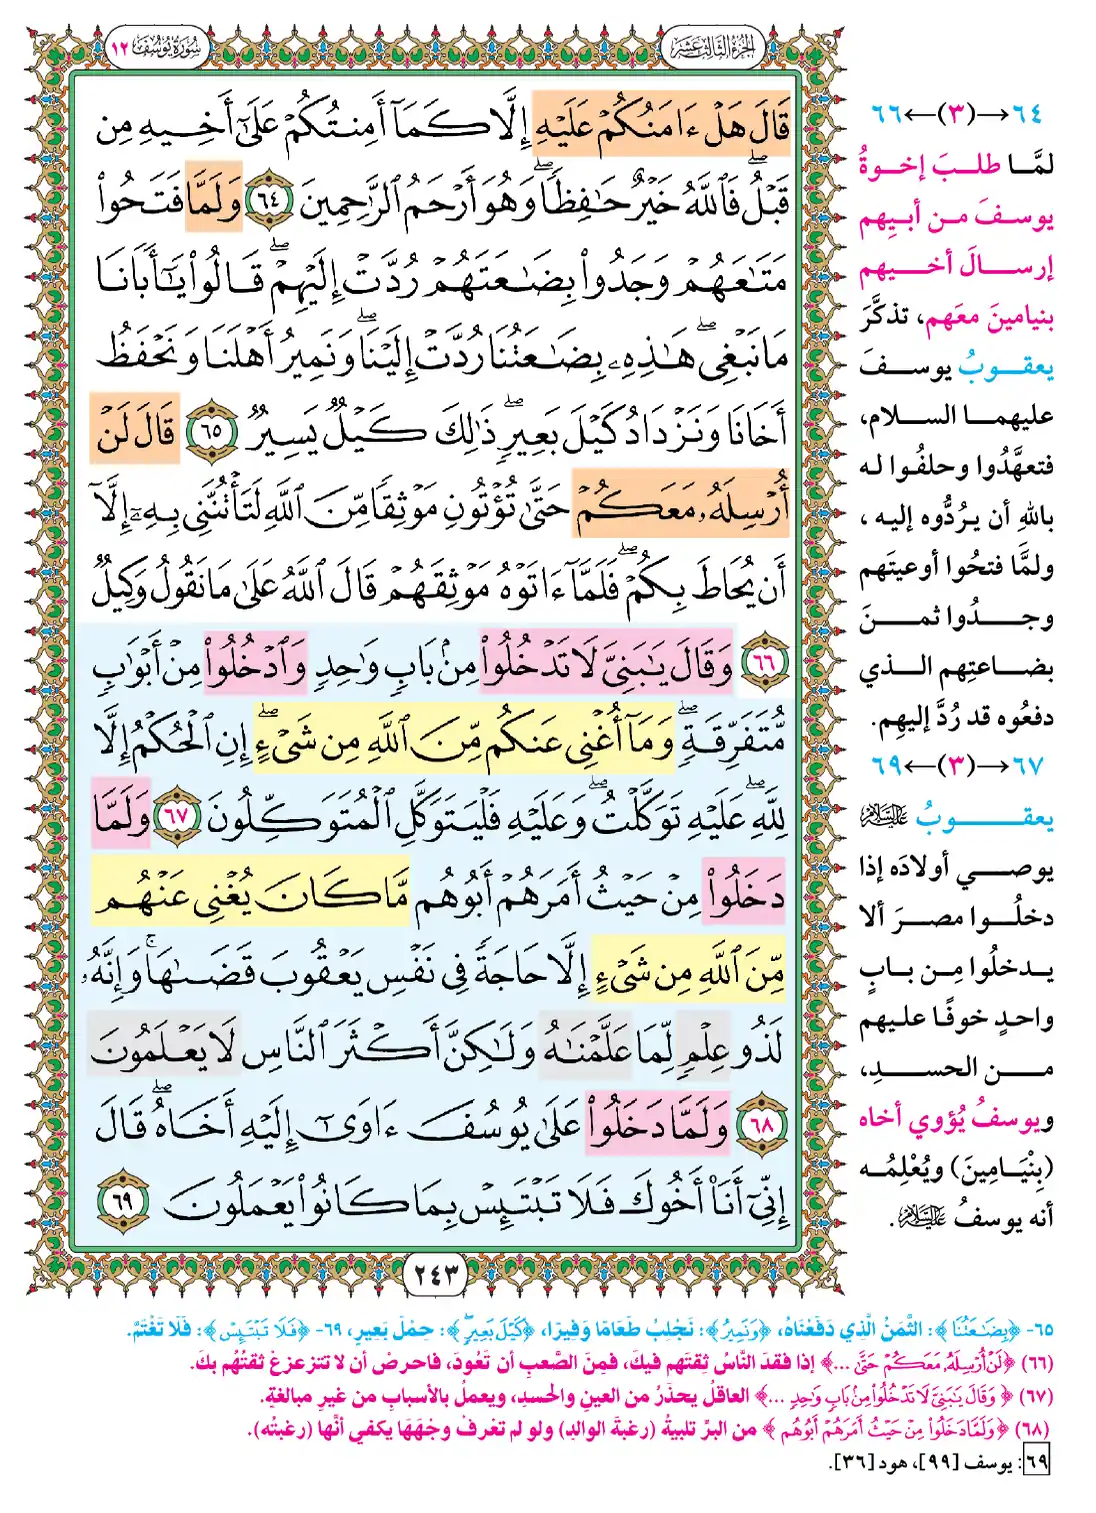 الجزء الثالث عشر
سورة يوسف ١٢
قَالَ هَلْ ءَامَنُكُمْ عَلَيْهِ إِلَّا كَمَآ أَمِنتُكُمْ عَلَىٰٓ أَخِيهِ مِن
قَبْلُ ۖ فَٱللَّهُ خَيْرٌ حَٰفِظًا ۖ وَهُوَ أَرْحَمُ ٱلرَّٰحِمِينَ ٦٤ وَلَمَّا فَتَحُوا۟
مَتَٰعَهُمْ وَجَدُوا۟ بِضَٰعَتَهُمْ رُدَّتْ إِلَيْهِمْ ۖ قَالُوا۟ يَٰٓأَبَانَا
مَا نَبْغِى ۖ هَٰذِهِۦ بِضَٰعَتُنَا رُدَّتْ إِلَيْنَا ۖ وَنَمِيرُ أَهْلَنَا وَنَحْفَظُ
أَخَانَا وَنَزْدَادُ كَيْلَ بَعِيرٍ ۖ ذَٰلِكَ كَيْلٌ يَسِيرٌ ٦٥ قَالَ لَنْ
أُرْسِلَهُۥ مَعَكُمْ حَتَّىٰ تُؤْتُونِ مَوْثِقًا مِّنَ ٱللَّهِ لَتَأْتُنَّنِى بِهِۦٓ إِلَّآ
أَن يُحَاطَ بِكُمْ ۖ فَلَمَّآ ءَاتَوْهُ مَوْثِقَهُمْ قَالَ ٱللَّهُ عَلَىٰ مَا نَقُولُ وَكِيلٌ
٦٦ وَقَالَ يَٰبَنِىَّ لَا تَدْخُلُوا۟ مِنۢ بَابٍ وَٰحِدٍ وَٱدْخُلُوا۟ مِنْ أَبْوَٰبٍ
مُّتَفَرِّقَةٍ ۖ وَمَآ أُغْنِى عَنكُم مِّنَ ٱللَّهِ مِن شَىْءٍ ۖ إِنِ ٱلْحُكْمُ إِلَّا
لِلَّهِ ۖ عَلَيْهِ تَوَكَّلْتُ ۖ وَعَلَيْهِ فَلْيَتَوَكَّلِ ٱلْمُتَوَكِّلُونَ ٦٧ وَلَمَّا
دَخَلُوا۟ مِنْ حَيْثُ أَمَرَهُمْ أَبُوهُم مَّا كَانَ يُغْنِى عَنْهُم
مِّنَ ٱللَّهِ مِن شَىْءٍ إِلَّا حَاجَةً فِى نَفْسِ يَعْقُوبَ قَضَىٰهَا ۚ وَإِنَّهُۥ
لَذُو عِلْمٍ لِّمَا عَلَّمْنَٰهُ وَلَٰكِنَّ أَكْثَرَ ٱلنَّاسِ لَا يَعْلَمُونَ
٦٨ وَلَمَّا دَخَلُوا۟ عَلَىٰ يُوسُفَ ءَاوَىٰٓ إِلَيْهِ أَخَاهُ ۖ قَالَ
إِنِّىٓ أَنَا۠ أَخُوكَ فَلَا تَبْتَئِسْ بِمَا كَانُوا۟ يَعْمَلُونَ ٦٩
٢٤٣
٦٤→(٣)←٦٦
لمَّا طلبَ إخوةُ
يوسفَ من أبيهم
إرسالَ أخيهم
بنيامينَ معَهم، تذكَّرَ
يعقوبُ يوسفَ
عليهما السلام،
فتعهَّدُوا وحلفُوا له
باللهِ أن يرُدُّوه إليه،
ولمَّا فتحُوا أوعيتَهم
وجدُوا ثمنَ
بضاعتِهم الذي
دفعُوه قد رُدَّ إليهِم.
٦٧→(٣)←٦٩
يعقوبُ عليه السلام
يوصي أولادَه إذا
دخلُوا مصرَ ألا
يدخلُوا مِن بابٍ
واحدٍ خوفًا عليهم
من الحسدِ،
ويوسفُ يُؤوي أخاه
(بِنْيَامِينَ) ويُعْلِمُه
أنه يوسفُ عليه السلام.
٦٥- ﴿بِضَٰعَتُنَا﴾: الثَّمَنُ الَّذِي دَفَعْنَاهُ، ﴿وَنَمِيرُ﴾: نَجْلِبُ طَعَامًا وَفِيرًا، ﴿كَيْلَ بَعِيرٍ ۖ﴾: حِمْلَ بَعِيرٍ، ٦٩- ﴿فَلَا تَبْتَئِسْ﴾: فَلَا تَغْتَمَّ.
(٦٦) ﴿لَنْ أُرْسِلَهُۥ مَعَكُمْ حَتَّىٰ ...﴾ إذا فقدَ النَّاسُ ثِقتَهم فيكَ، فمِنَ الصَّعبِ أن تَعُودَ، فاحرصْ أن لا تتزعزعَ ثقتُهُم بكَ.
(٦٧) ﴿وَقَالَ يَٰبَنِىَّ لَا تَدْخُلُوا۟ مِنۢ بَابٍ وَٰحِدٍ ...﴾ العاقلُ يحذَرُ من العينِ والحسدِ، ويعملُ بالأسبابِ من غيرِ مبالغةٍ.
(٦٨) ﴿وَلَمَّا دَخَلُوا۟ مِنْ حَيْثُ أَمَرَهُمْ أَبُوهُم﴾ من البرِّ تلبيةُ (رغبةَ الوالدِ) ولو لم تعْرفْ وجْهَهَا يكفي أنَّها (رغبتُه).
٦٩: يوسف [٩٩]، هود [٣٦].